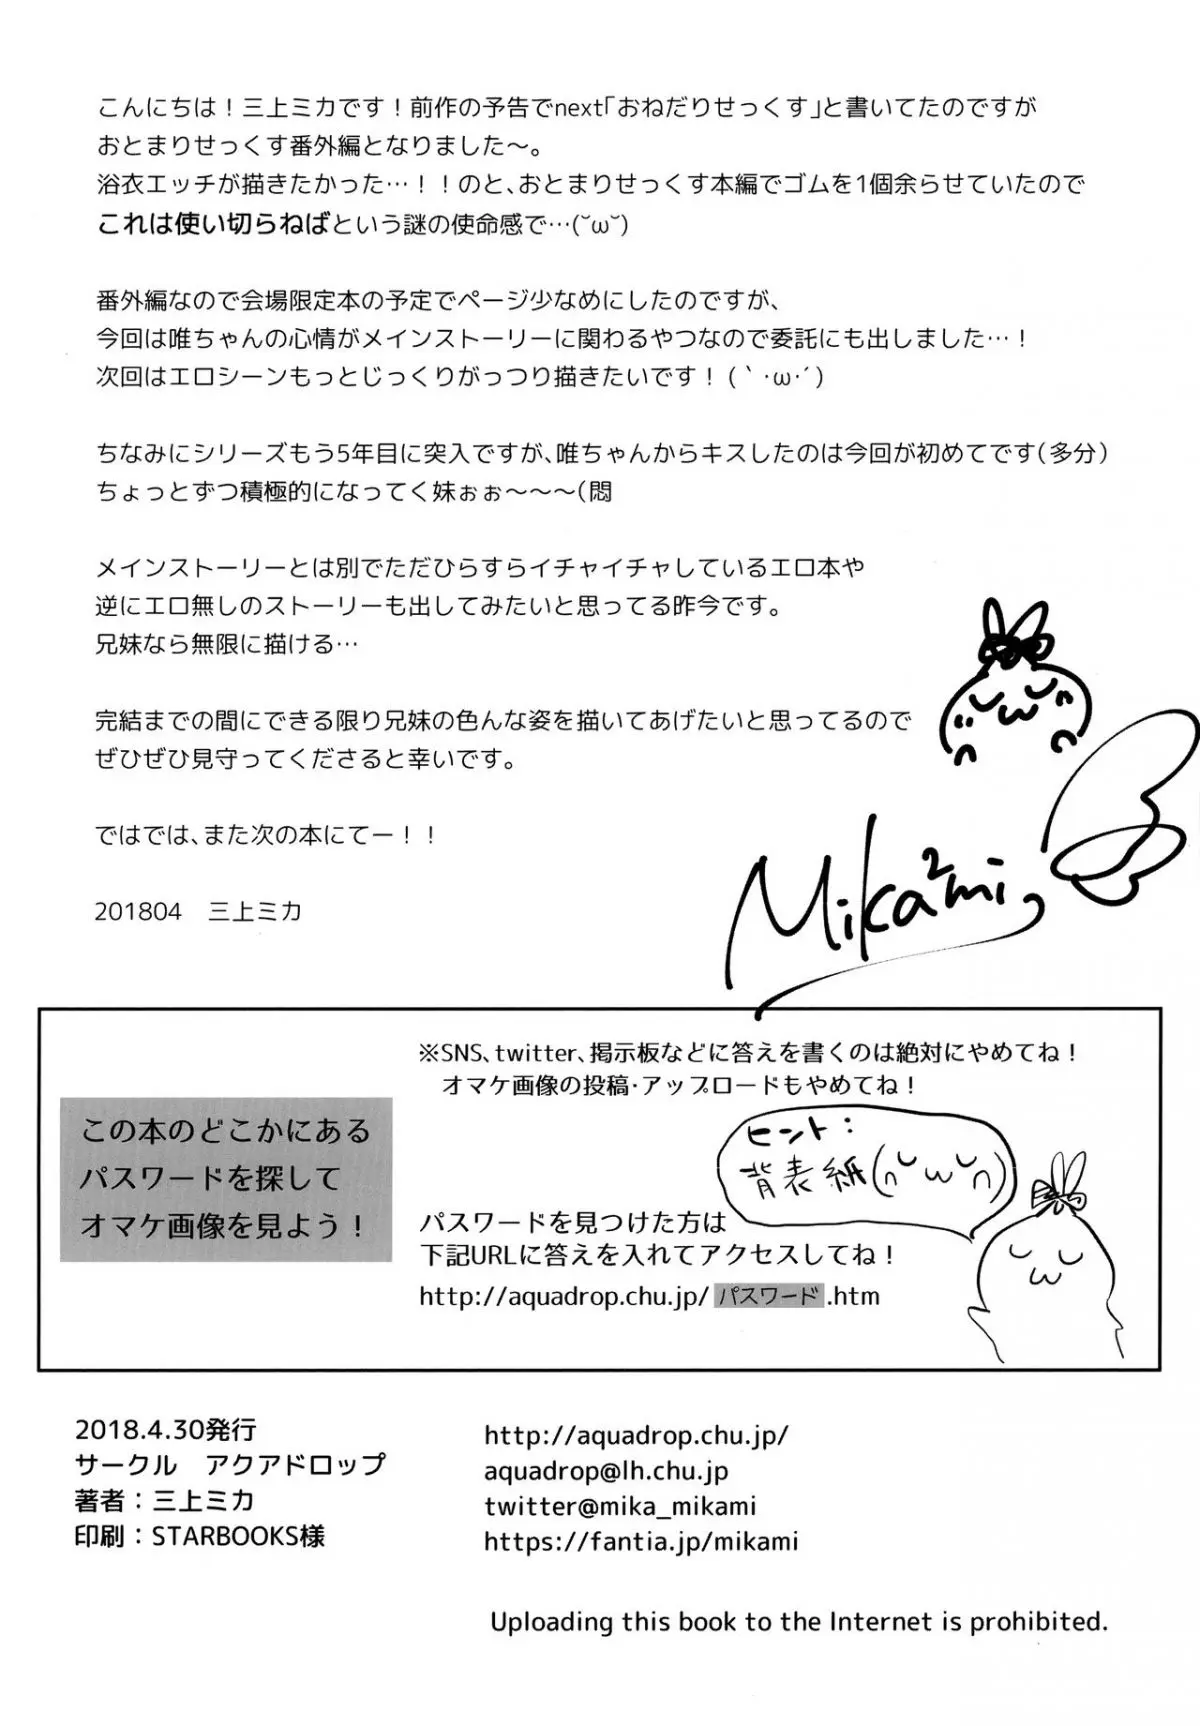 こんにちは！三上ミカです！前作の予告でnext「おねだりせっくす」と書いてたのですが
おとまりせっくす番外編となりました～。
浴衣エッチが描きたかった…！！のと、おとまりせっくす本編でゴムを1個余らせていたので
これは使い切らねばという謎の使命感で…(˘ω˘)
番外編なので会場限定本の予定でページ少なめにしたのですが、
今回は唯ちゃんの心情がメインストーリーに関わるやつなので委託にも出しました…！
次回はエロシーンもっとじっくりがっつり描きたいです！(｀･ω･´)
ちなみにシリーズもう5年目に突入ですが、唯ちゃんからキスしたのは今回が初めてです(多分)
ちょっとずつ積極的になってく妹ぉぉ～～～(悶
メインストーリーとは別でただひらすらイチャイチャしているエロ本や
逆にエロ無しのストーリーも出してみたいと思ってる昨今です。
兄妹なら無限に描ける…
完結までの間にできる限り兄妹の色んな姿を描いてあげたいと思ってるので
ぜひぜひ見守ってくださると幸いです。
ではでは、また次の本にてー！！
201804　三上ミカ
Mika2mi
※SNS、twitter、掲示板などに答えを書くのは絶対にやめてね！
オマケ画像の投稿・アップロードもやめてね！
この本のどこかにある
パスワードを探して
オマケ画像を見よう！
ヒント：
背表紙(∩˘ω˘∩)
パスワードを見つけた方は
下記URLに答えを入れてアクセスしてね！
http://aquadrop.chu.jp/パスワード.htm
2018.4.30発行
サークル　アクアドロップ
著者：三上ミカ
印刷：STARBOOKS様
http://aquadrop.chu.jp/
aquadrop@lh.chu.jp
twitter@mika_mikami
https://fantia.jp/mikami
Uploading this book to the Internet is prohibited.